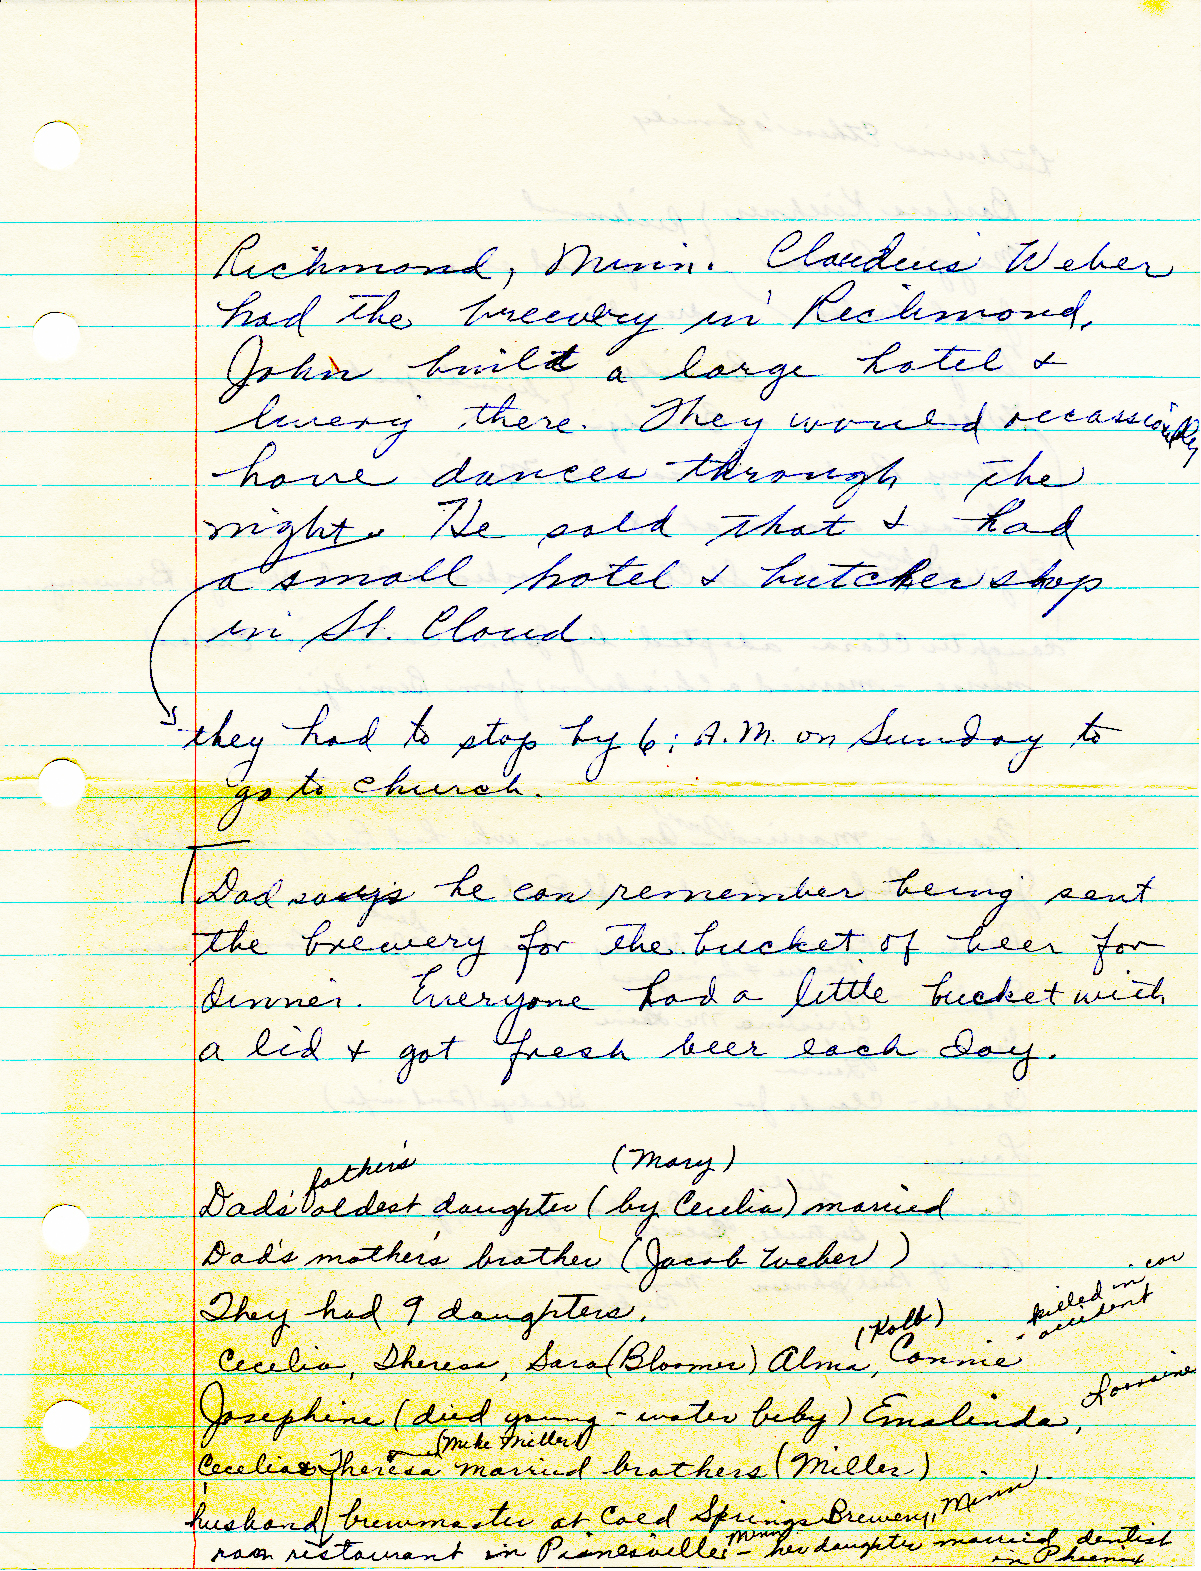 Richmond, Minn. Claudius Weber
had the brewery in Richmond.
John built a large hotel &
livery there. They would occassionally
have dances through the
night. He sold that & had
a small hotel & butcher shop
in St. Cloud.
they had to stop by 6: A.M. on Sunday to
go to church.
Dad says he can remember being sent
the brewery for the bucket of beer for
dinner. Everyone had a little bucket with
a lid & got fresh beer each day.
father's (Mary)
Dad's oldest daughter (by Cecelia) married
Dad's mother's brother (Jacob Weber)
They had 9 daughters.
(Kolb) killed in car accident
Cecelia, Theresa, Sara (Bloomer) Alma, Connie
Josephine (died young - water baby) Emalinda, Lorraine
(Mike Miller)
Cecelia & Theresa married brothers (Miller)
husband brewmaster at Cold Springs Brewery, Minn.
ran restaurant in Painesville Minn - her daughter married dentist
in Phoenix